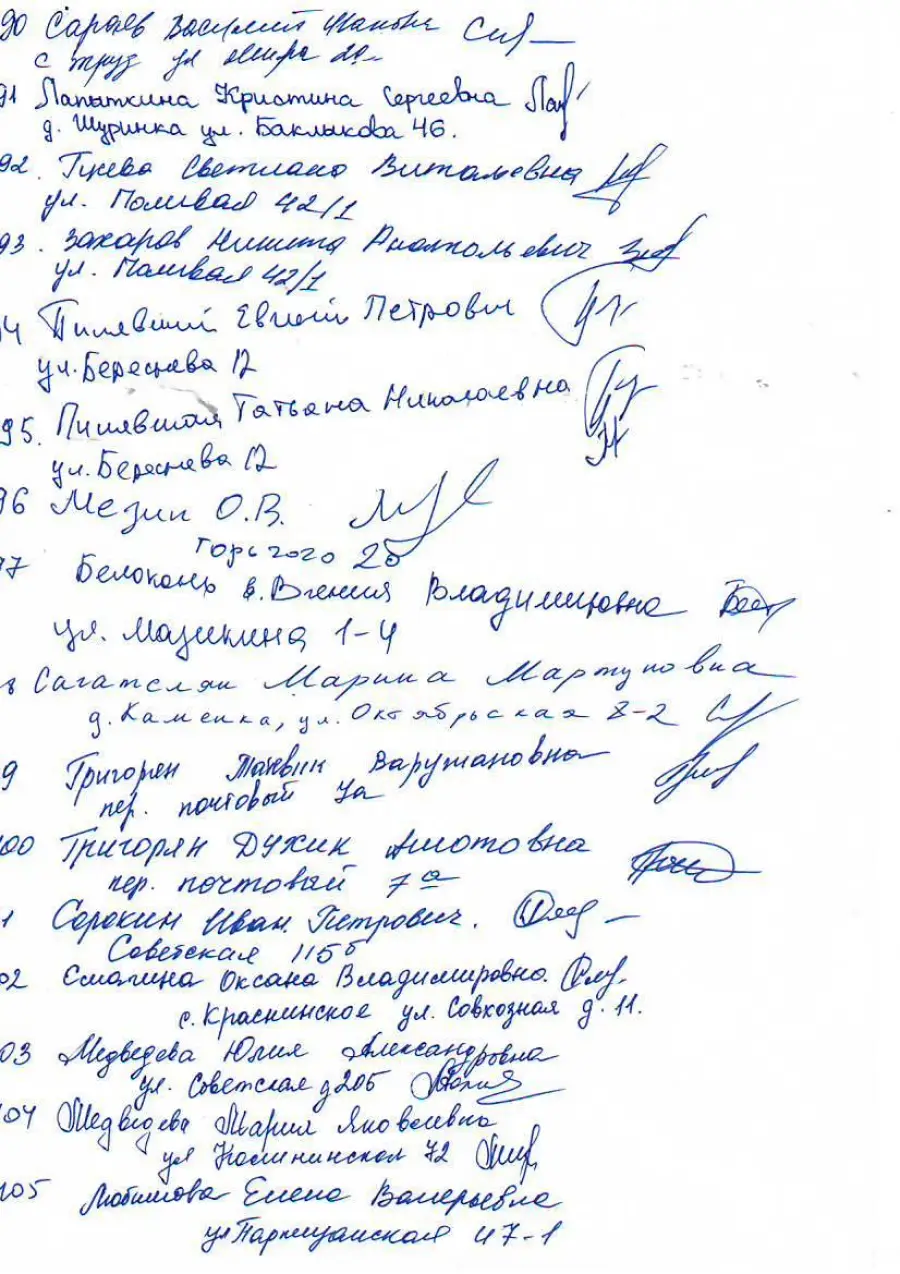 90 Сараев Василий Иванович
с Труд ул Мира 20
91 Лапыткина Кристина Сергеевна
д. Щуринка ул. Баклыкова 46.
92. Гусева Светлана Витальевна
ул. Полевая 42/1
93. Захаров Никита Анатольевич
ул. Полевая 42/1
4 Пилявский Евгений Петрович
ул. Береснева 12
95. Пилявская Татьяна Николаевна
ул. Береснева 12
96 Мезин О.В.
Горького 25
7 Белоконь Владимировна
ул. Мазикина 1-4
8 Сагателян Марина Мартуновна
д. Каменка, ул. Октябрьская 8-2
9 Григорян Варужановна
пер. почтовый 7а
100 Григорян Духик Ашотовна
пер. почтовый 7а
1 Сорокин Иван Петрович.
Советская 115б
02 Смагина Оксана Владимировна.
с. Краснинское ул. Совхозная д. 11.
03 Медведева Юлия Александровна
ул. Советская д 205
104 Медведева Мария Яковлевна
ул Калининская 72
105 Любимова Елена Валерьевна
ул Партизанская 47-1